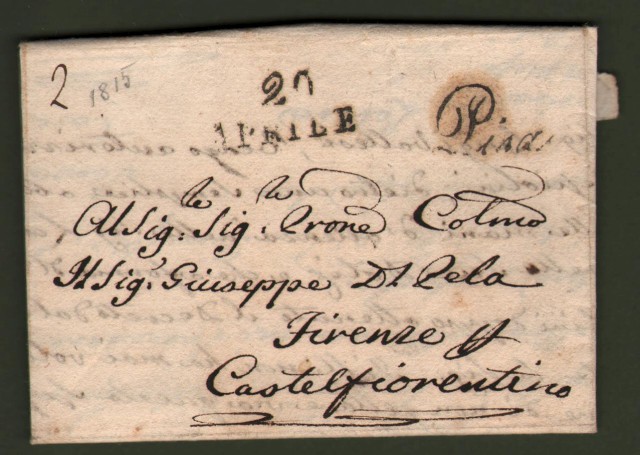 2
1815
20
APRILE
Al Sig:le Sig:le Prone Colmo
Il Sig: Giuseppe Del Pela
Firenze
Castelfiorentino